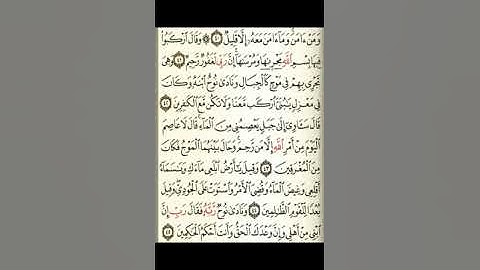 وَمَنْ ءَامَنَ وَمَآ ءَامَنَ مَعَهُۥٓ إِلَّا قَلِيلٌ ۝٤٠ وَقَالَ ٱرْكَبُوا۟
فِيهَا بِسْمِ ٱللَّهِ مَجْر۪ىٰهَا وَمُرْسَىٰهَآ إِنَّ رَبِّى لَغَفُورٌ رَّحِيمٌ ۝٤١ وَهِىَ
تَجْرِى بِهِمْ فِى مَوْجٍ كَٱلْجِبَالِ وَنَادَىٰ نُوحٌ ٱبْنَهُۥ وَكَانَ
فِى مَعْزِلٍ يَـٰبُنَىَّ ٱرْكَب مَّعَنَا وَلَا تَكُن مَّعَ ٱلْكَـٰفِرِينَ ۝٤٢
قَالَ سَـَٔاوِىٓ إِلَىٰ جَبَلٍ يَعْصِمُنِى مِنَ ٱلْمَآءِ قَالَ لَا عَاصِمَ
ٱلْيَوْمَ مِنْ أَمْرِ ٱللَّهِ إِلَّا مَن رَّحِمَ وَحَالَ بَيْنَهُمَا ٱلْمَوْجُ فَكَانَ
مِنَ ٱلْمُغْرَقِينَ ۝٤٣ وَقِيلَ يَـٰٓأَرْضُ ٱبْلَعِى مَآءَكِ وَيَـٰسَمَآءُ
أَقْلِعِى وَغِيضَ ٱلْمَآءُ وَقُضِىَ ٱلْأَمْرُ وَٱسْتَوَتْ عَلَى ٱلْجُودِىِّ وَقِيلَ
بُعْدًا لِّلْقَوْمِ ٱلظَّـٰلِمِينَ ۝٤٤ وَنَادَىٰ نُوحٌ رَّبَّهُۥ فَقَالَ رَبِّ إِنَّ
ٱبْنِى مِنْ أَهْلِى وَإِنَّ وَعْدَكَ ٱلْحَقُّ وَأَنتَ أَحْكَمُ ٱلْحَـٰكِمِينَ ۝٤٥